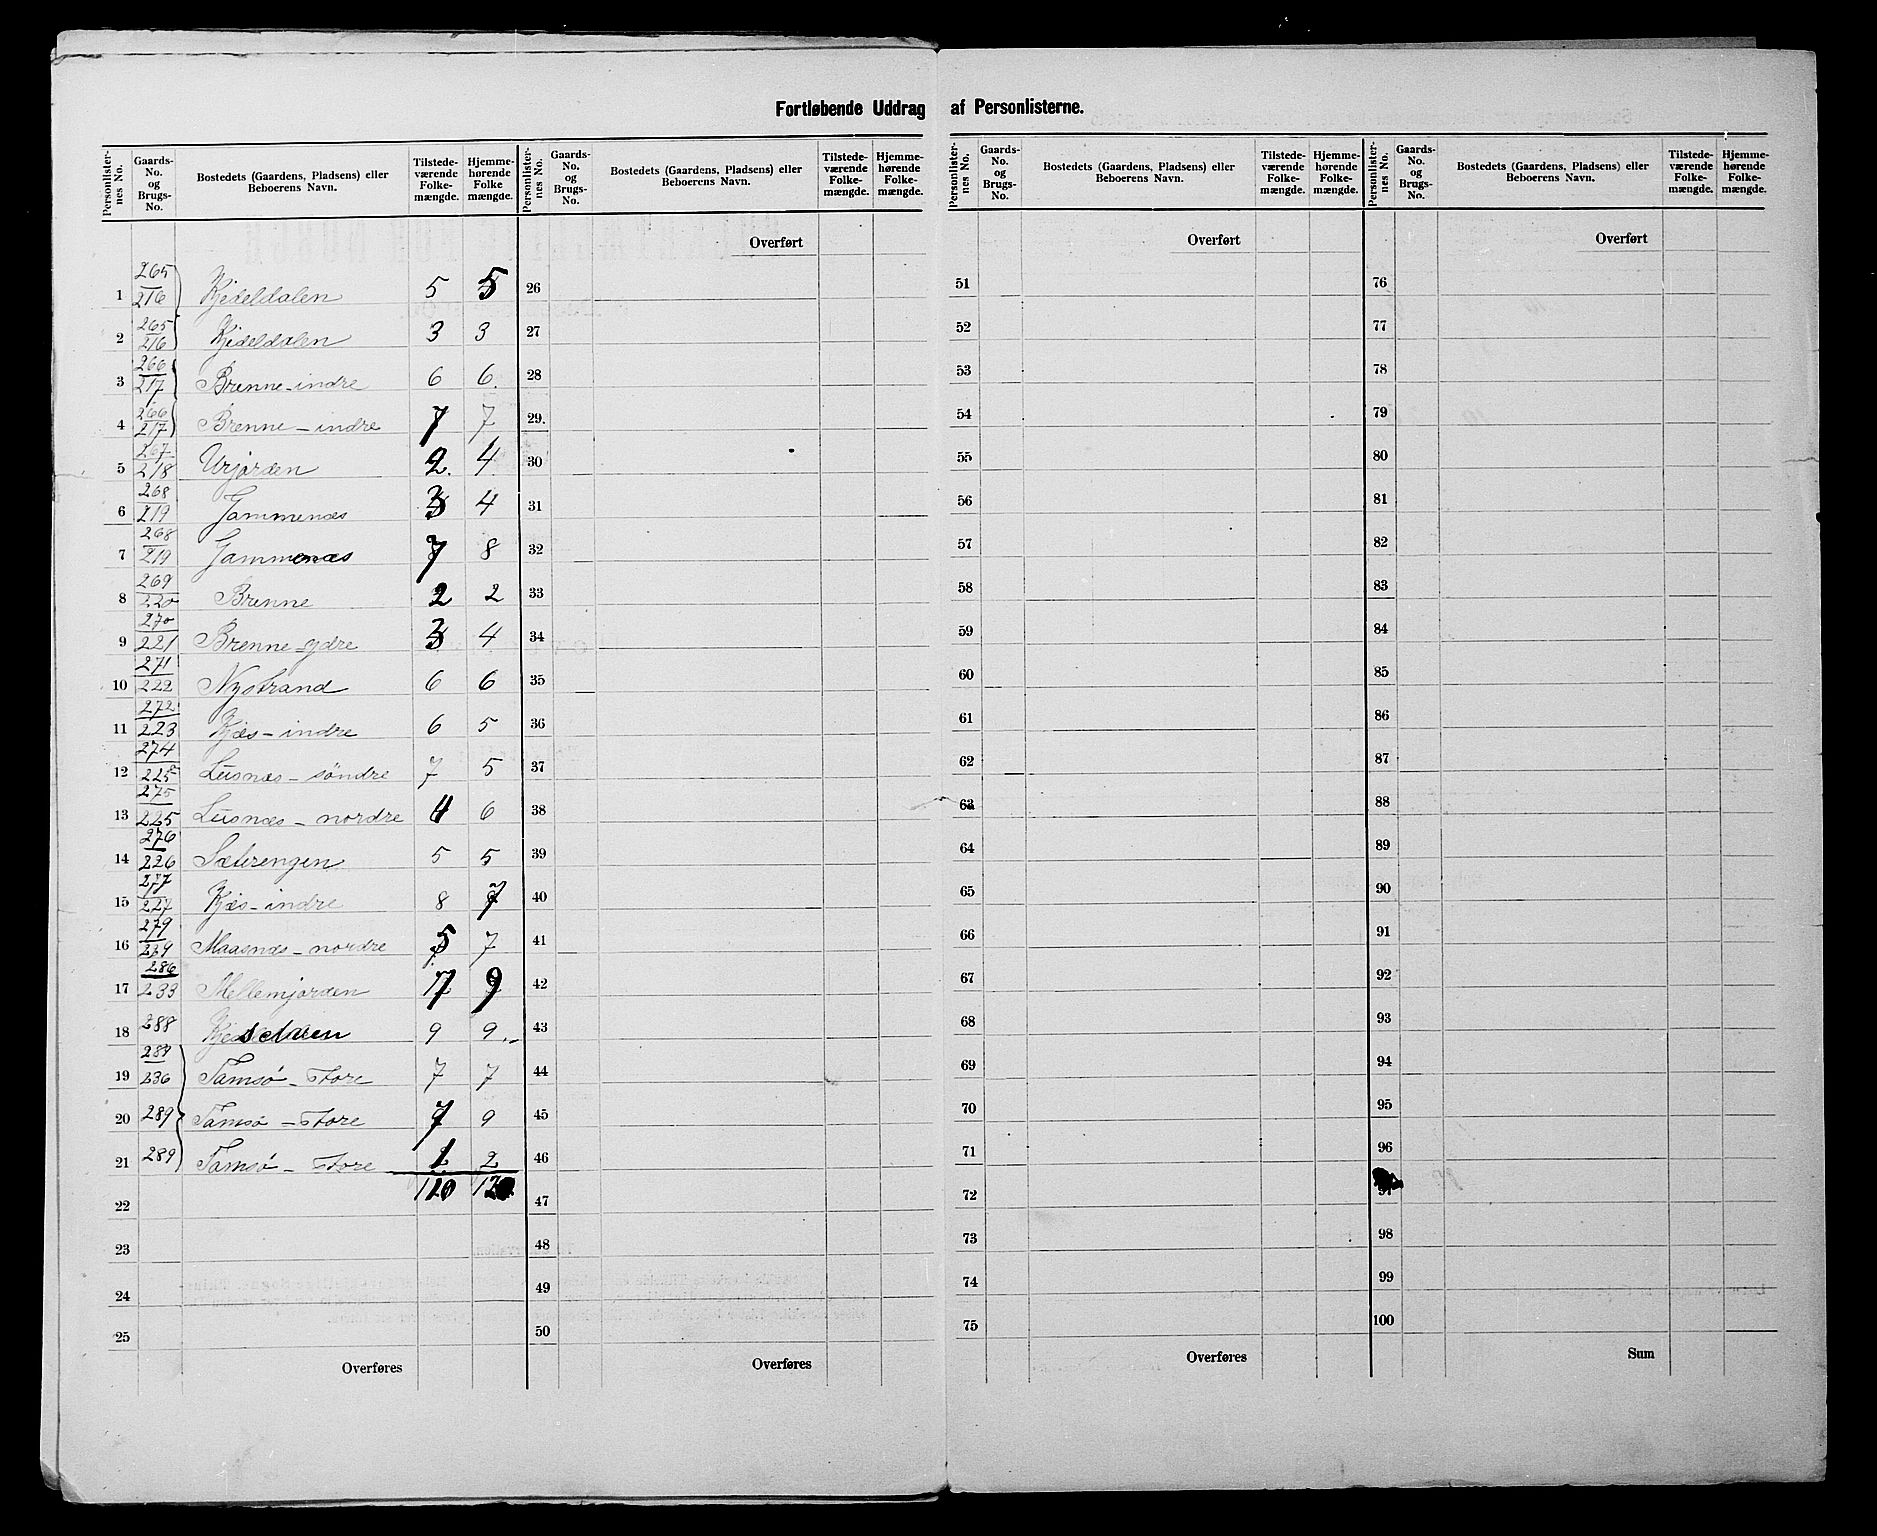 Fortløbende Uddrag af Personlisterne.
Personlisternes No. | Gaards-No. og Brugs-No. | Bostedets (Gaardens, Pladsens) eller Beboerens Navn. | Tilstedeværende Folkemængde. | Hjemmehørende Folkemængde.
1 265/216 Kjedeldalen 5 5
2 265/216 Kjedeldalen 3 3
3 266/217 Brenne-indre 6 6
4 266/217 Brenne-indre 7 7
5 267/218 Urjorden 2 4
6 268/219 Gammenæs 3 4
7 268/219 Gammenæs 7 8
8 269/220 Brenne 2 2
9 270/221 Brenne ydre 3 4
10 271/222 Nystrand 6 6
11 272/223 Kjæs-indre 6 5
12 274/225 Lusnæs-søndre 7 5
13 275/225 Lusnæs-nordre 4 6
14 276/226 Sæterengen 5 5
15 277/227 Kjæs-indre 8 7
16 279/229 Maasnæs-nordre 5 7
17 286/233 Mellemjorden 17 9
18 288 9 9
19 289/236 Tamsø-Store 7 7
20 289 Tamsø-Store 7 9
21 289 Tamsø-Store 1 2
22 120
23
24
25
Overføres
Personlisternes No. | Gaards-No. og Brugs-No. | Bostedets (Gaardens, Pladsens) eller Beboerens Navn. | Tilstedeværende Folkemængde. | Hjemmehørende Folkemængde.
Overført
26
27
28
29
30
31
32
33
34
35
36
37
38
39
40
41
42
43
44
45
46
47
48
49
50
Overføres
Personlisternes No. | Gaards-No. og Brugs-No. | Bostedets (Gaardens, Pladsens) eller Beboerens Navn. | Tilstedeværende Folkemængde. | Hjemmehørende Folkemængde.
Overført
51
52
53
54
55
56
57
58
59
60
61
62
63
64
65
66
67
68
69
70
71
72
73
74
75
Overføres
Personlisternes No. | Gaards-No. og Brugs-No. | Bostedets (Gaardens, Pladsens) eller Beboerens Navn. | Tilstedeværende Folkemængde. | Hjemmehørende Folkemængde.
Overført
76
77
78
79
80
81
82
83
84
85
86
87
88
89
90
91
92
93
94
95
96
97
98
99
100
Sum